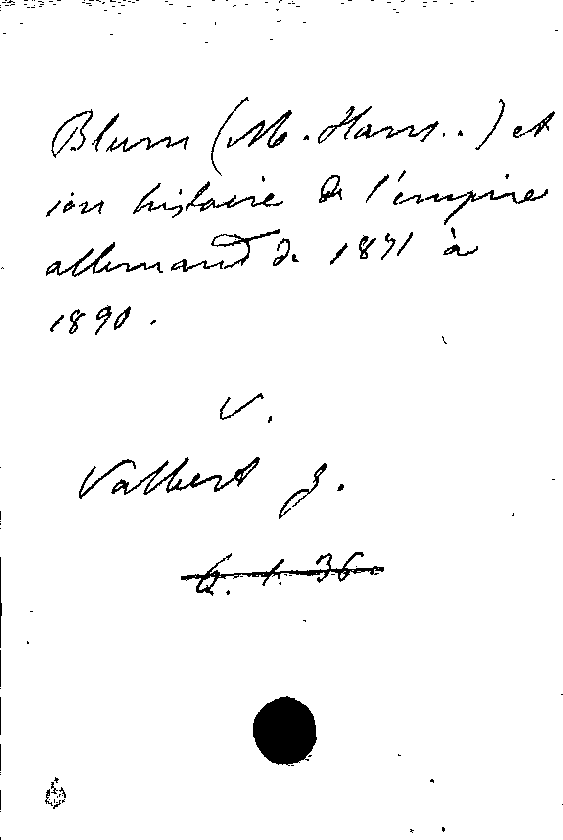 Blum (M. Hans..) et
son histoire de l'empire
allemand de 1871 à
1890.
V.
Valbert G.
Q. 1. 36.